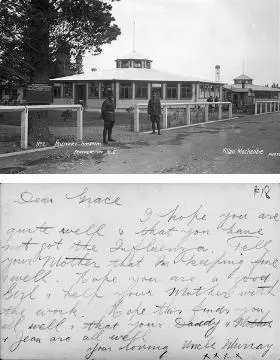 Nº2 Military Hospital
Featherston N.Z.
Allan MacKenzie
Dear Grace
I hope you are
quite well & that you have
not got the Influenza. Tell
your Mother that Im keeping fine
& well. Hope you are a good
Girl & help your Mother with
the work. Hope this finds you
all well & that your Daddy & Mother
& Jean are all well.
Your loving Uncle Murray
x x x x